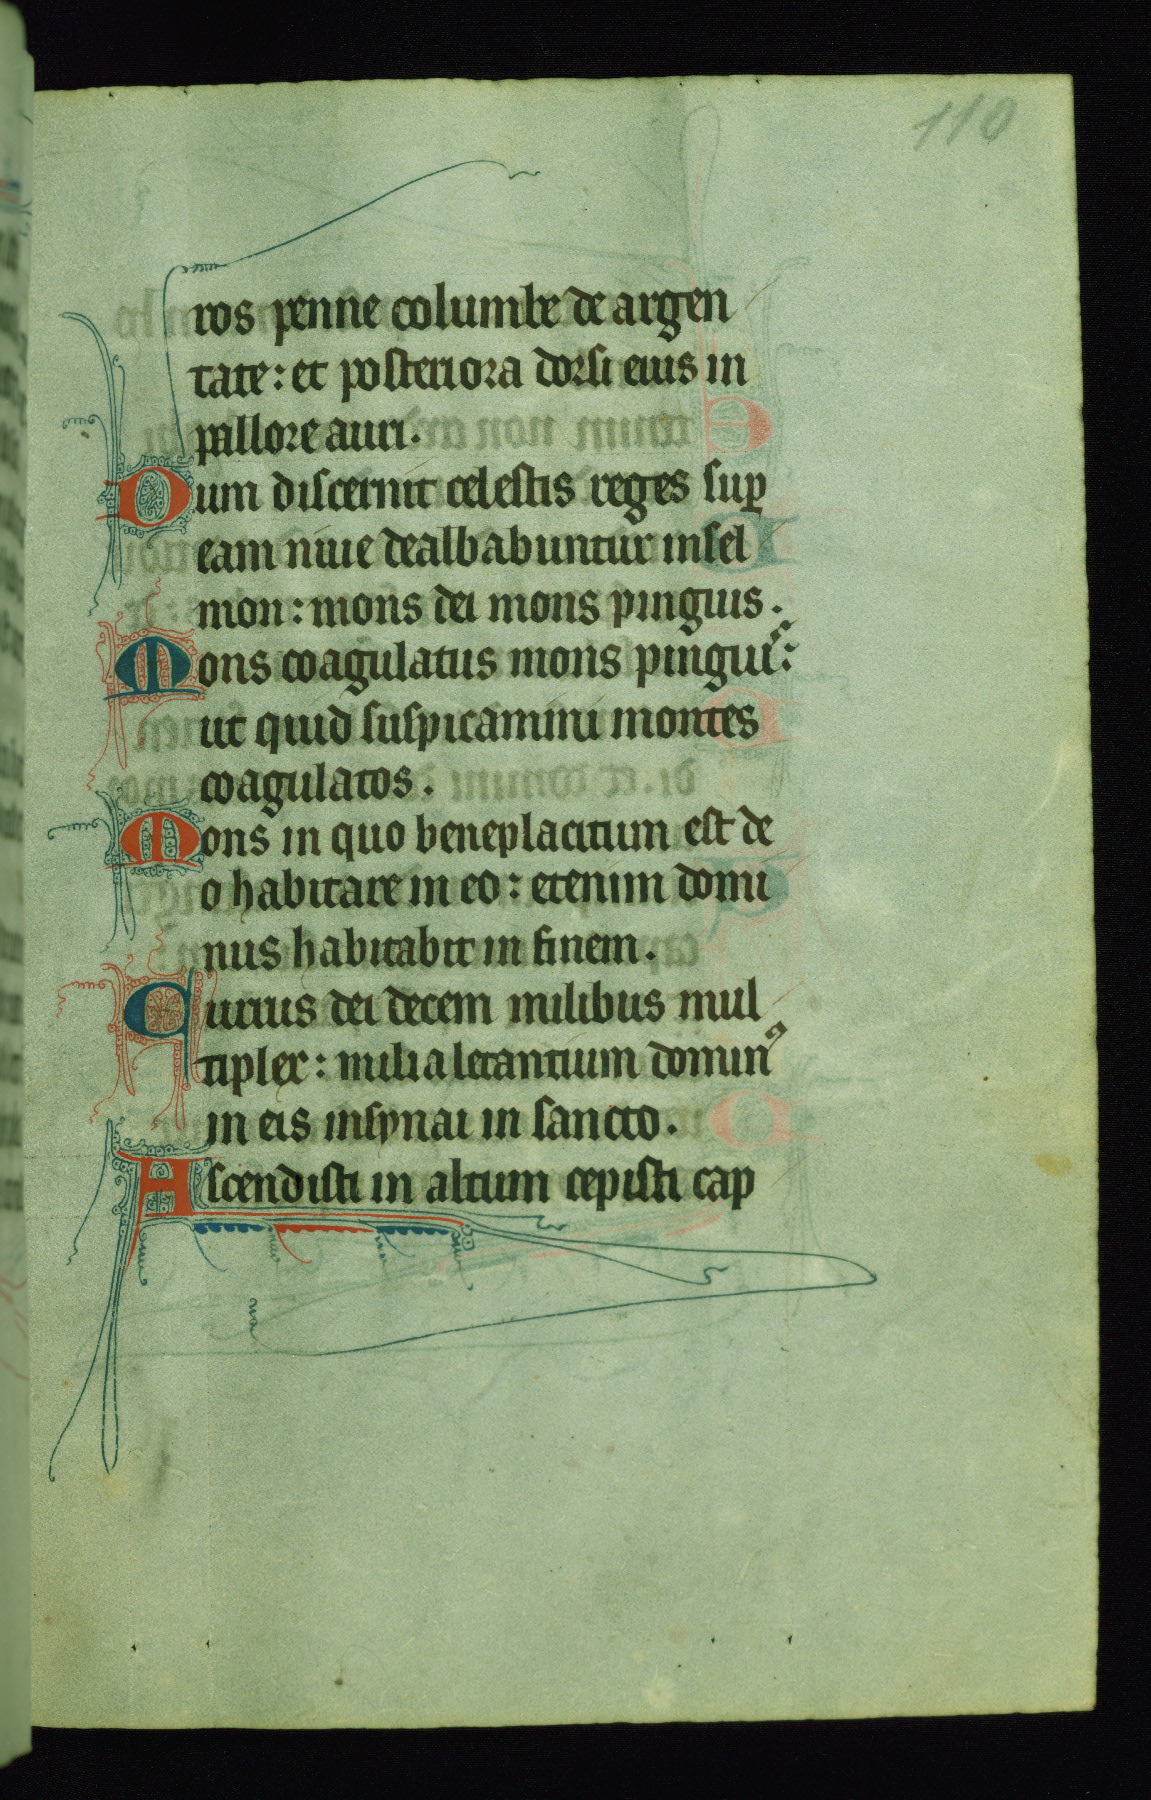 110
ros penne columbe de argen
tate: et posteriora dorsi eius in
pallore auri.
Dum discernit celestis reges sup
eam niue dealbabuntur in sel
mon: mons dei mons pinguis.
Mons coagulatus mons pinguis:
ut quid suspicamini montes
coagulatos.
Mons in quo beneplacitum est de
o habitare in eo: etenim domi
nus habitabit in finem.
Currus dei decem milibus mul
tiplex: milia letantium dominꝰ
in eis in synai in sancto.
Ascendisti in altum cepisti cap